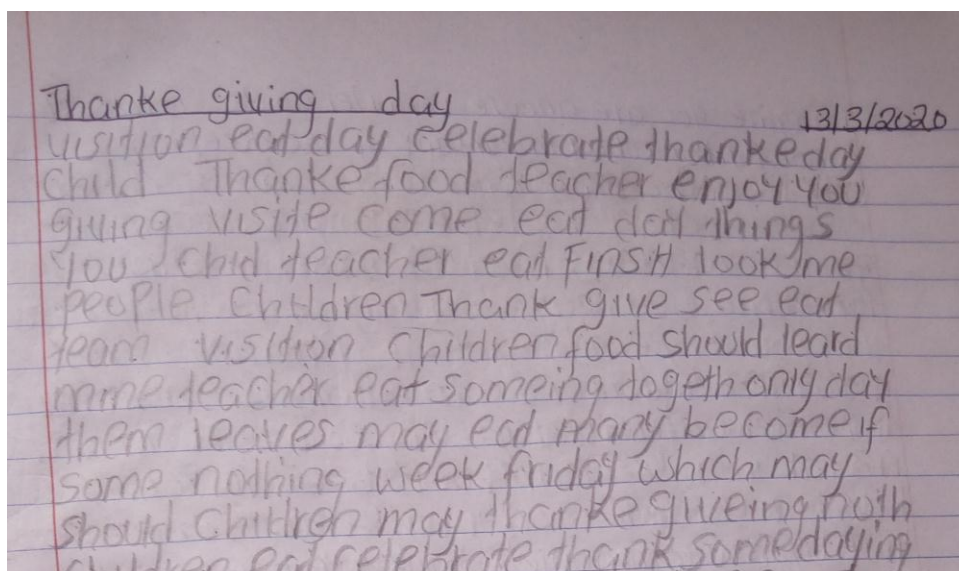 Thanke giving day
13/3/2020
visition eat day celebrate thanke day
child Thanke food teacher enjoy you
giving visite come eat day things
you chid teacher eat FinsH look me
people children Thank give see eat
team visition children food should leard
teacher eat someing togeth only day
them leaves may eat many become if
some nothing week friday which may
should children may thanke giveing noth
children eat celebrate thank some daying